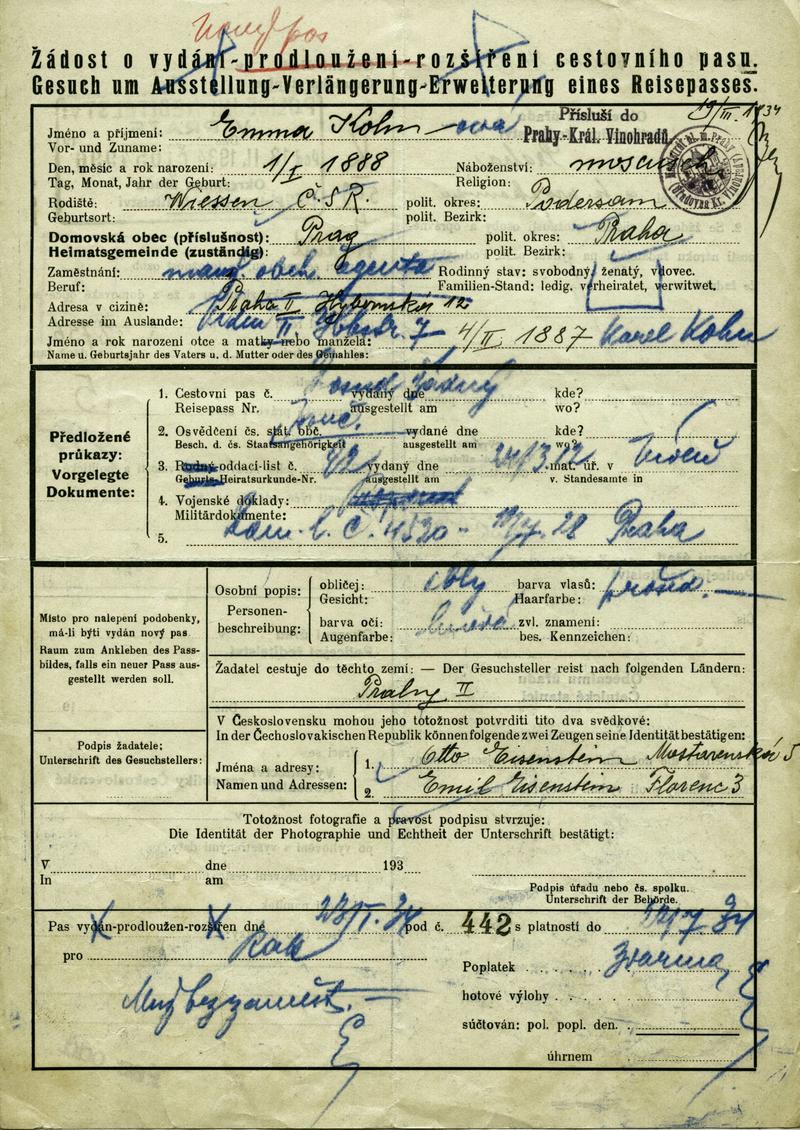 Nový pas
Žádost o vydání-prodloužení-rozšíření cestovního pasu.
Gesuch um Ausstellung-Verlängerung-Erweiterung eines Reisepasses.
19/III. 1934
Přísluší do
Prahy-Král. Vinohradů
Jméno a příjmení: Emma Kohn-ová
Vor- und Zuname:
Den, měsíc a rok narození: 1/I 1888 Náboženství: mosaisch
Tag, Monat, Jahr der Geburt: Religion:
Rodiště: Wiessen Č.S.R. polit. okres: Podersam
Geburtsort: polit. Bezirk:
Domovská obec (příslušnost): Prag polit. okres: Praha
Heimatsgemeinde (zuständig): polit. Bezirk:
Zaměstnání: manž. obch. agenta Rodinný stav: svobodný, ženatý, vdovec.
Beruf: Familien-Stand: ledig. verheiratet, verwitwet.
Adresa v cizině: Praha II Hybernská 12
Adresse im Auslande: Vídeň II. 7
Jméno a rok narození otce a matky nebo manžela: 4/II 1887 Karel Kohn
Name u. Geburtsjahr des Vaters u. d. Mutter oder des Gemahles:
Předložené průkazy:
Vorgelegte Dokumente:
1. Cestovní pas č. Dosud žádný vydaný dne kde?
Reisepass Nr. ausgestellt am wo?
2. Osvědčení čs. stát. obč. vydané dne kde?
Besch. d. čs. Staatsangehörigkeit ausgestellt am wo?
3. Rodný-oddací-list č. 42 vydaný dne 24/3.12 mat. úř. v Vídeň
Geburts-Heiratsurkunde-Nr. ausgestellt am v. Standesamte in
4. Vojenské doklady:
Militärdokumente:
5. Dom. l. č. 4530 28 Praha
Místo pro nalepení podobenky, má-li býti vydán nový pas
Raum zum Ankleben des Passbildes, falls ein neuer Pass ausgestellt werden soll.
Osobní popis:
Personenbeschreibung:
obličej: oblý barva vlasů: prošed.
Gesicht: Haarfarbe:
barva očí: hnědá zvl. znamení:
Augenfarbe: bes. Kennzeichen:
Žadatel cestuje do těchto zemí: — Der Gesuchsteller reist nach folgenden Ländern:
Prahy II
Podpis žadatele:
Unterschrift des Gesuchstellers:
V Československu mohou jeho totožnost potvrditi tito dva svědkové:
In der Čechoslovakischen Republik können folgende zwei Zeugen seine Identität bestätigen:
Jména a adresy:
Namen und Adressen:
1. Otto Eisenstein Mostarenská 5
2. Emil Eisenstein Florenc 3
Totožnost fotografie a pravost podpisu stvrzuje:
Die Identität der Photographie und Echtheit der Unterschrift bestätigt:
V dne 193
In am
Podpis úřadu nebo čs. spolku.
Unterschrift der Behörde.
Pas vydán-prodloužen-rozšířen dne pod č. 442 s platností do
pro Rak
Poplatek zdarma
Muž bezzaměst.
hotové výlohy
súčtován: pol. popl. den.
úhrnem